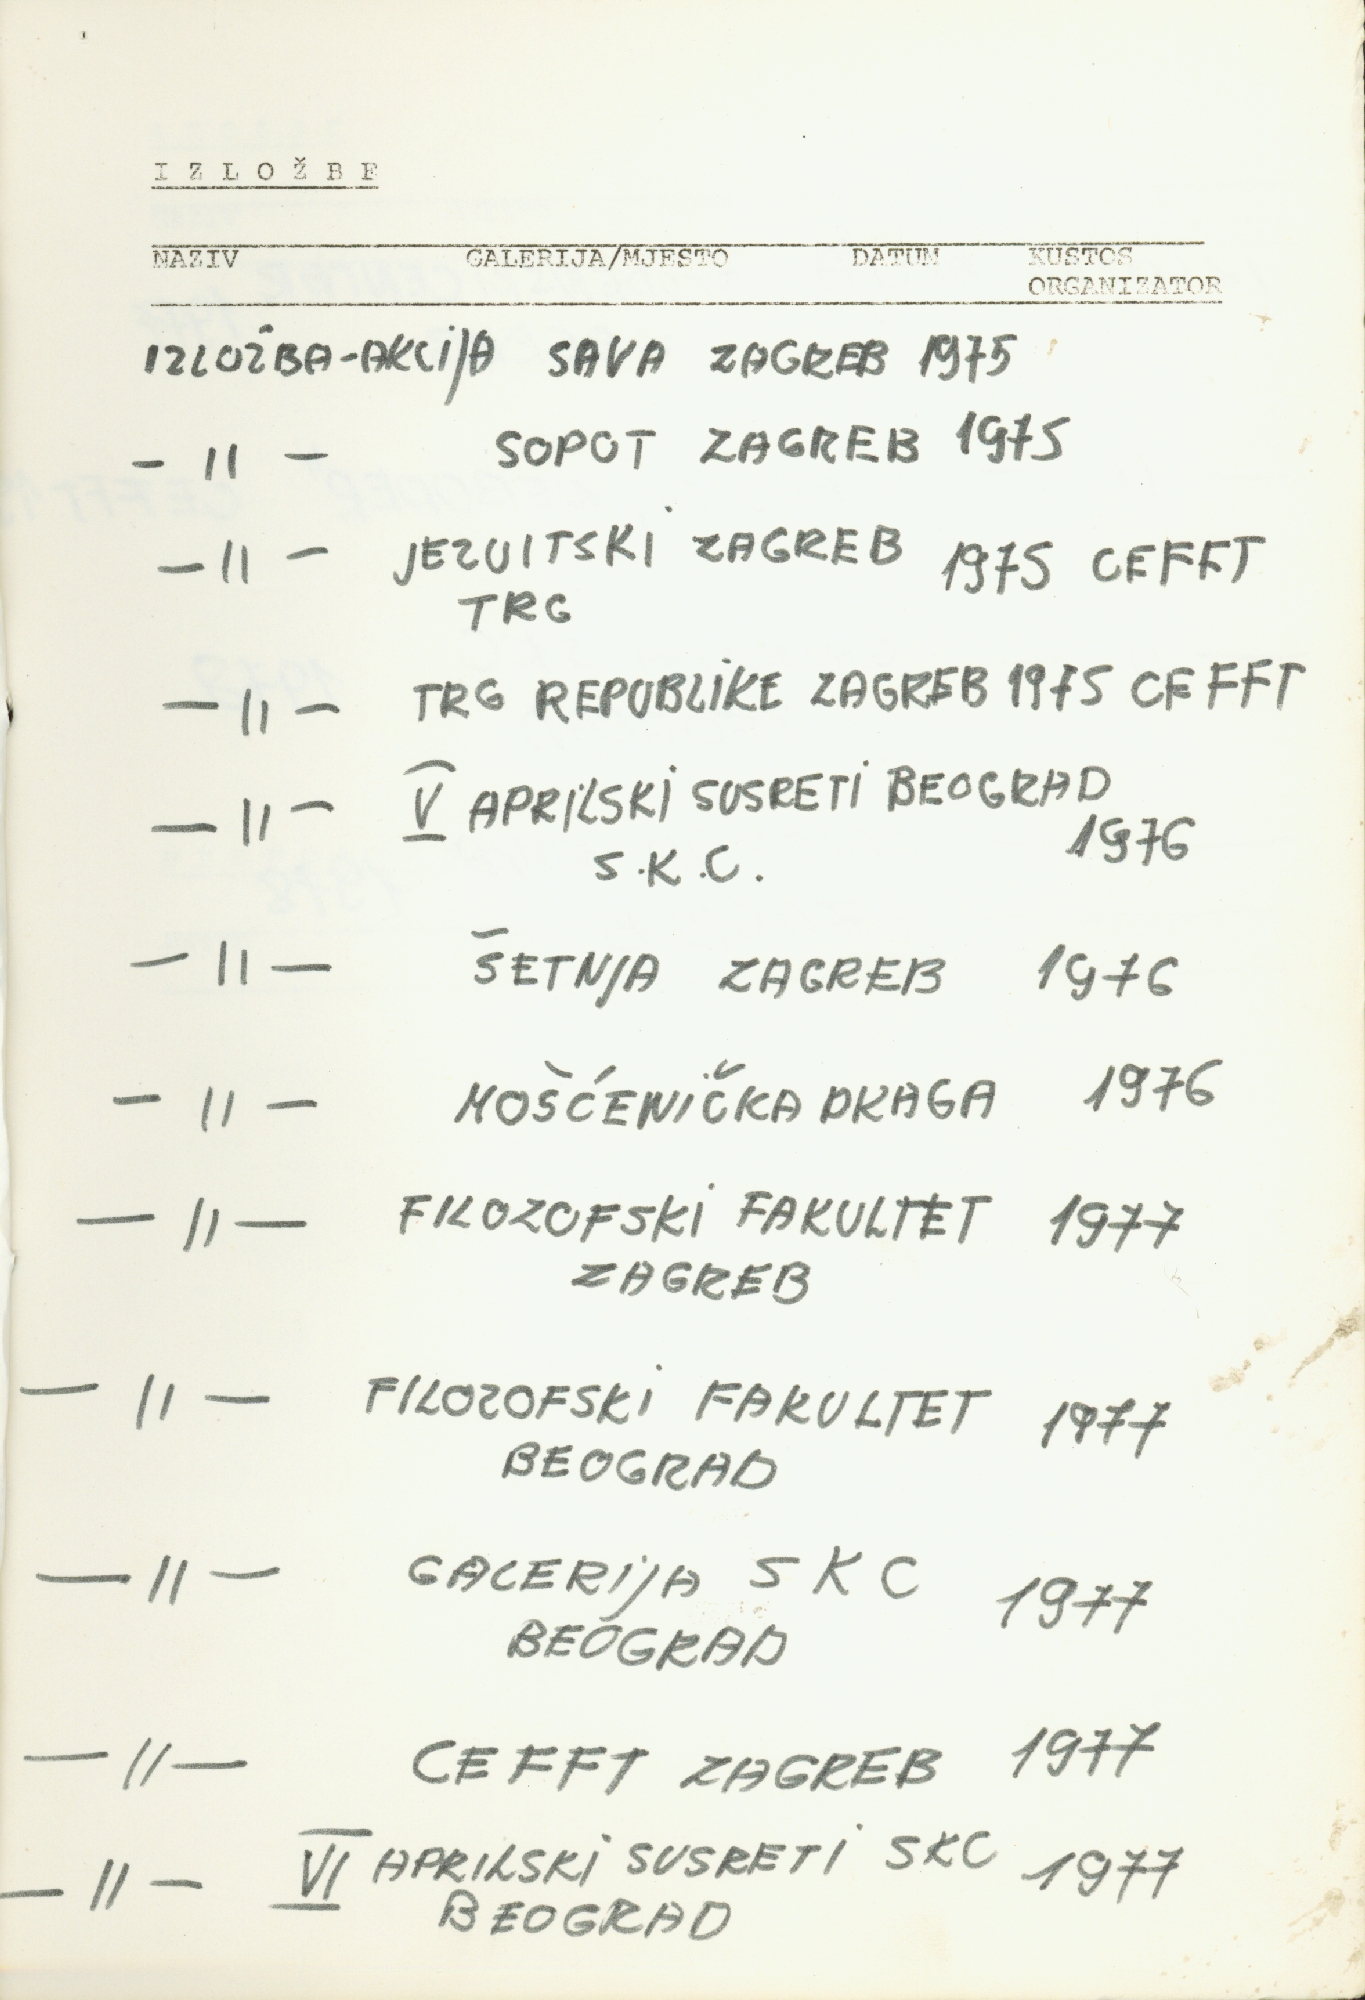 IZLOŽBE
NAZIV GALERIJA/MJESTO DATUM KUSTOS
ORGANIZATOR
IZLOŽBA-AKCIJA SAVA ZAGREB 1975
- 11 - SOPOT ZAGREB 1975
- 11 - JEZUITSKI ZAGREB 1975 CEFFT
TRG
- 11 - TRG REPUBLIKE ZAGREB 1975 CEFFT
- 11 - V APRILSKI SUSRETI BEOGRAD
1976
S.K.C.
- 11 - ŠETNJA ZAGREB 1976
- 11 - MOŠĆENIČKA DRAGA 1976
- 11 - FILOZOFSKI FAKULTET 1977
ZAGREB
- 11 - FILOZOFSKI FAKULTET 1977
BEOGRAD
- 11 - GALERIJA SKC 1977
BEOGRAD
- 11 - CEFFT ZAGREB 1977
- 11 - VI APRILSKI SUSRETI SKC 1977
BEOGRAD